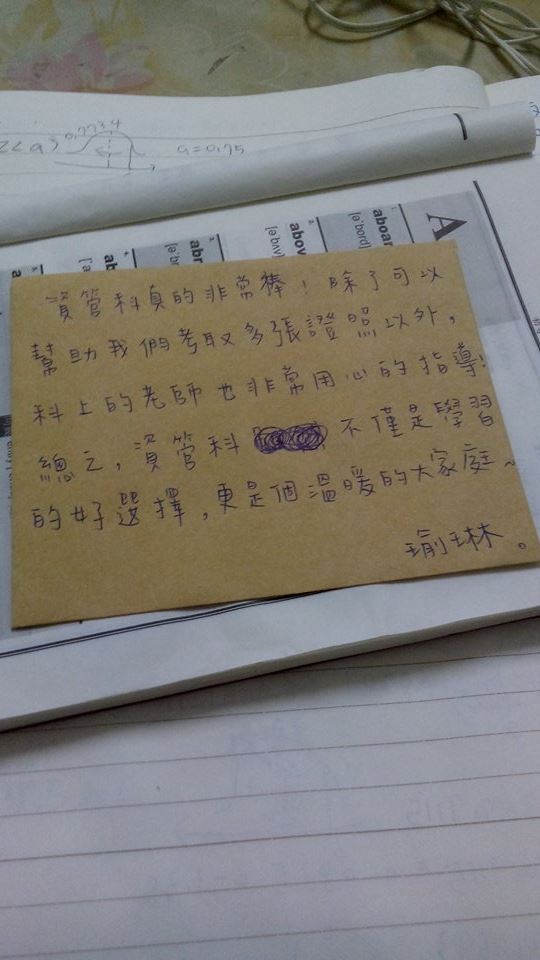 Z<a) 0.7734
a=0.75
A
aboar
[ə'bord]
abov
[ə'bʌv]
abr
[ə'br
資管科真的非常棒！除了可以
幫助我們考取多張證照以外，
科上的老師也非常用心的指導！
總之，資管科 不僅是學習
的好選擇，更是個溫暖的大家庭～
瑜琳。